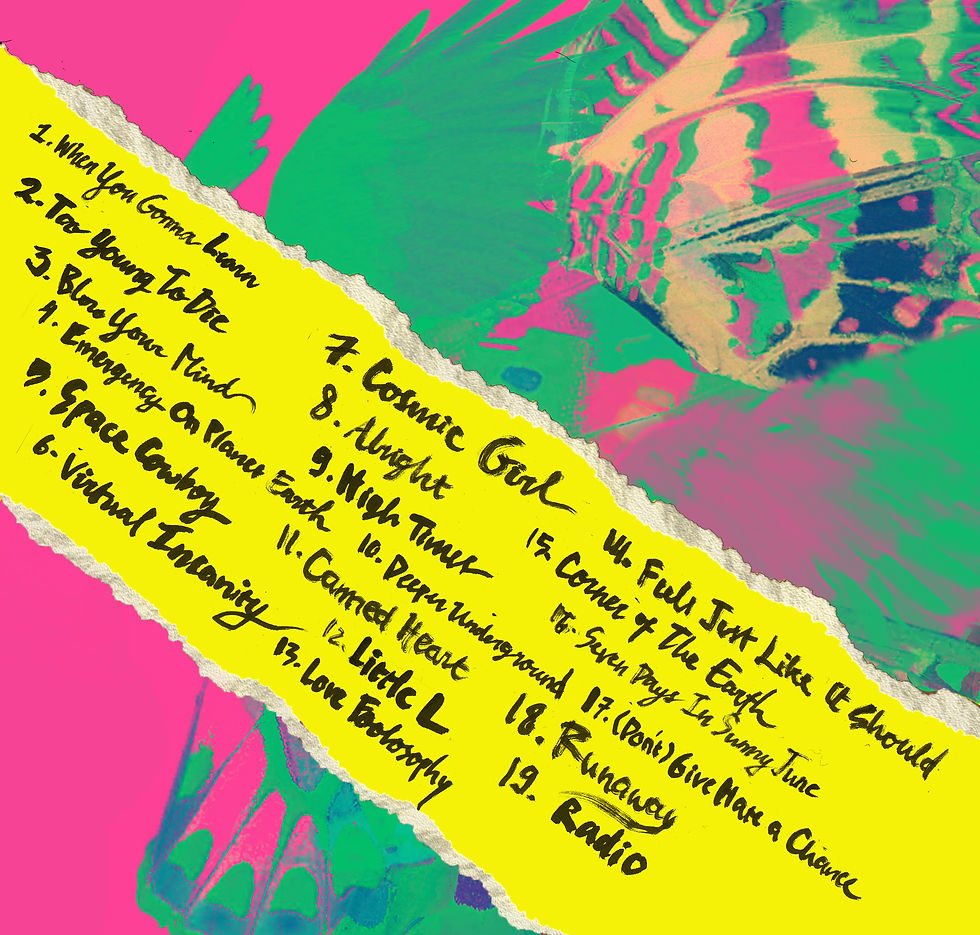 1. When You Gonna Learn
2. Too Young To Die
3. Blow Your Mind
4. Emergency On Planet Earth
5. Space Cowboy
6. Virtual Insanity
7. Cosmic Girl
8. Alright
9. High Times
10. Deeper Underground
11. Canned Heart
12. Little L
13. Love Foolosophy
14. Feels Just Like It Should
15. Corner of The Earth
16. Seven Days In Sunny June
17. (Don't) Give Hate a Chance
18. Runaway
19. Radio